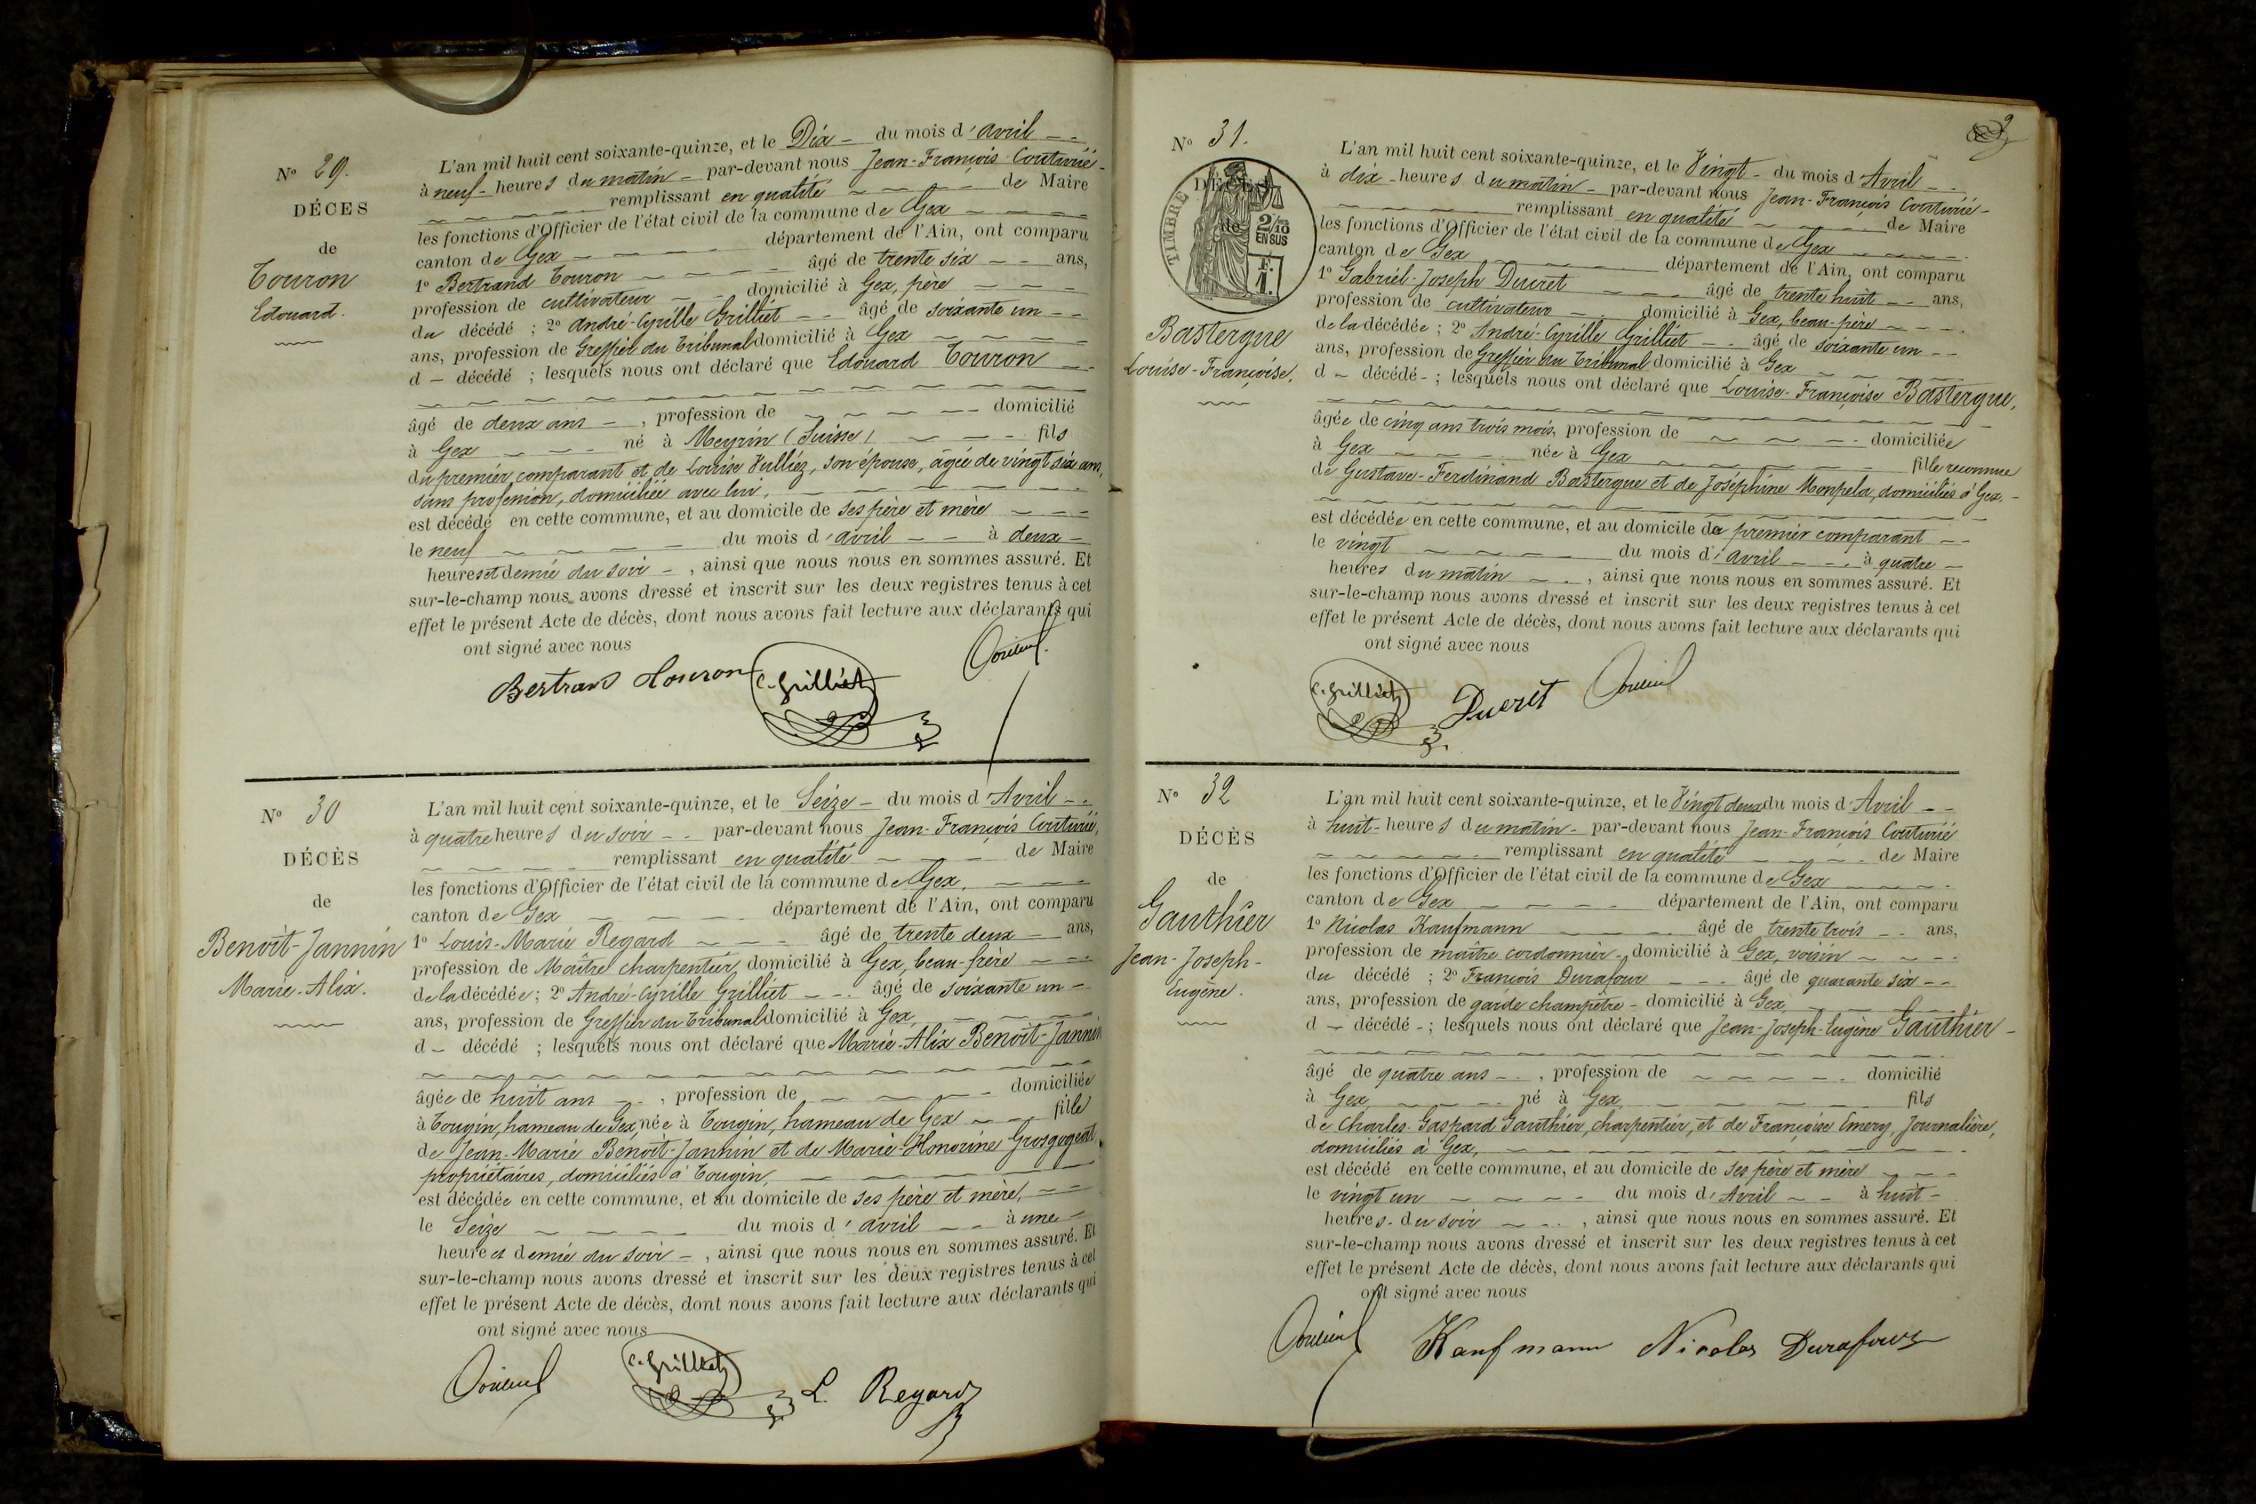 Nº 29.
DÉCES
de
Touron
Edouard.
L'an mil huit cent soixante-quinze, et le Dix du mois d'avril
à neuf heures du matin par-devant nous Jean-François Couturié
remplissant en qualité de Maire
les fonctions d'Officier de l'état civil de la commune de Gex
canton de Gex département de l'Ain, ont comparu
1º Bertrand Touron âgé de trente six ans,
profession de cultivateur domicilié à Gex, père
du décédé ; 2º André-Cyrille Grilliet âgé de soixante un
ans, profession de Greffier du Tribunal domicilié à Gex
d décédé ; lesquels nous ont déclaré que Edouard Touron
âgé de deux ans , profession de domicilié
à Gex né à Meyrin (Suisse) fils
du premier comparant et de Louise Vulliez, son épouse, âgée de vingt six ans,
sans profession, domiciliée avec lui,
est décédé en cette commune, et au domicile de ses père et mère
le neuf du mois d'avril à deux
heures et demie du soir , ainsi que nous nous en sommes assuré. Et
sur-le-champ nous avons dressé et inscrit sur les deux registres tenus à cet
effet le présent Acte de décès, dont nous avons fait lecture aux déclarants qui
ont signé avec nous
Bertrand Touron C. Grilliet
Nº 30
DÉCÈS
de
Benoit-Jannin
Marie-Alix.
L'an mil huit cent soixante-quinze, et le Seize du mois d'Avril
à quatre heures du soir par-devant nous Jean-François Couturié,
remplissant en qualité de Maire
les fonctions d'Officier de l'état civil de la commune de Gex,
canton de Gex département de l'Ain, ont comparu
1º Louis-Marie Regard âgé de trente deux ans,
profession de Maître charpentier, domicilié à Gex, beau-frère
de la décédée ; 2º André-Cyrille Grilliet âgé de soixante un
ans, profession de Greffier du Tribunal domicilié à Gex,
d décédé ; lesquels nous ont déclaré que Marie-Alix Benoit-Jannin
âgée de huit ans , profession de domiciliée
à Tougin, hameau de Gex, née à Tougin, hameau de Gex fille
de Jean-Marie Benoit-Jannin et de Marie-Honorine Grosgogeat,
propriétaires, domiciliés à Tougin,
est décédée en cette commune, et au domicile de ses père et mère,
le Seize du mois d'avril à une
heure et demie du soir , ainsi que nous nous en sommes assuré. Et
sur-le-champ nous avons dressé et inscrit sur les deux registres tenus à cet
effet le présent Acte de décès, dont nous avons fait lecture aux déclarants qui
ont signé avec nous
C. Grilliet L. Regard
Nº 31.
DÉCÈS
de
TIMBRE
2/10
EN SUS
F.
1.
Bastergue
Louise-Françoise.
L'an mil huit cent soixante-quinze, et le Vingt du mois d'Avril
à dix heures du matin par-devant nous Jean-François Couturié
remplissant en qualité de Maire
les fonctions d'Officier de l'état civil de la commune de Gex
canton de Gex département de l'Ain, ont comparu
1º Gabriel-Joseph Ducret âgé de trente huit ans,
profession de cultivateur domicilié à Gex, beau-père
de la décédée ; 2º André-Cyrille Grilliet âgé de soixante un
ans, profession de Greffier du Tribunal domicilié à Gex
d décédé ; lesquels nous ont déclaré que Louise-Françoise Bastergue,
âgée de cinq ans trois mois, profession de domiciliée
à Gex née à Gex fille reconnue
de Gustave-Ferdinand Bastergue et de Joséphine Monpela, domiciliés à Gex,
est décédée en cette commune, et au domicile du premier comparant
le vingt du mois d'avril à quatre
heures du matin , ainsi que nous nous en sommes assuré. Et
sur-le-champ nous avons dressé et inscrit sur les deux registres tenus à cet
effet le présent Acte de décès, dont nous avons fait lecture aux déclarants qui
ont signé avec nous
C. Grilliet Ducret
Nº 32
DÉCÈS
de
Gauthier
Jean-Joseph-
Eugène.
L'an mil huit cent soixante-quinze, et le Vingt deux du mois d'Avril
à huit heures du matin par-devant nous Jean-François Couturié
remplissant en qualité de Maire
les fonctions d'Officier de l'état civil de la commune de Gex
canton de Gex département de l'Ain, ont comparu
1º Nicolas Kaufmann âgé de trente trois ans,
profession de maître cordonnier domicilié à Gex, voisin
du décédé ; 2º François Durafour âgé de quarante six
ans, profession de garde champêtre domicilié à Gex,
d décédé ; lesquels nous ont déclaré que Jean-Joseph-Eugène Gauthier
âgé de quatre ans , profession de domicilié
à Gex né à Gex fils
de Charles-Gaspard Gauthier, charpentier, et de Françoise Emery, journalière,
domiciliés à Gex,
est décédé en cette commune, et au domicile de ses père et mère
le vingt un du mois d'Avril à huit
heures du soir , ainsi que nous nous en sommes assuré. Et
sur-le-champ nous avons dressé et inscrit sur les deux registres tenus à cet
effet le présent Acte de décès, dont nous avons fait lecture aux déclarants qui
ont signé avec nous
Kaufmann Nicolas Durafour